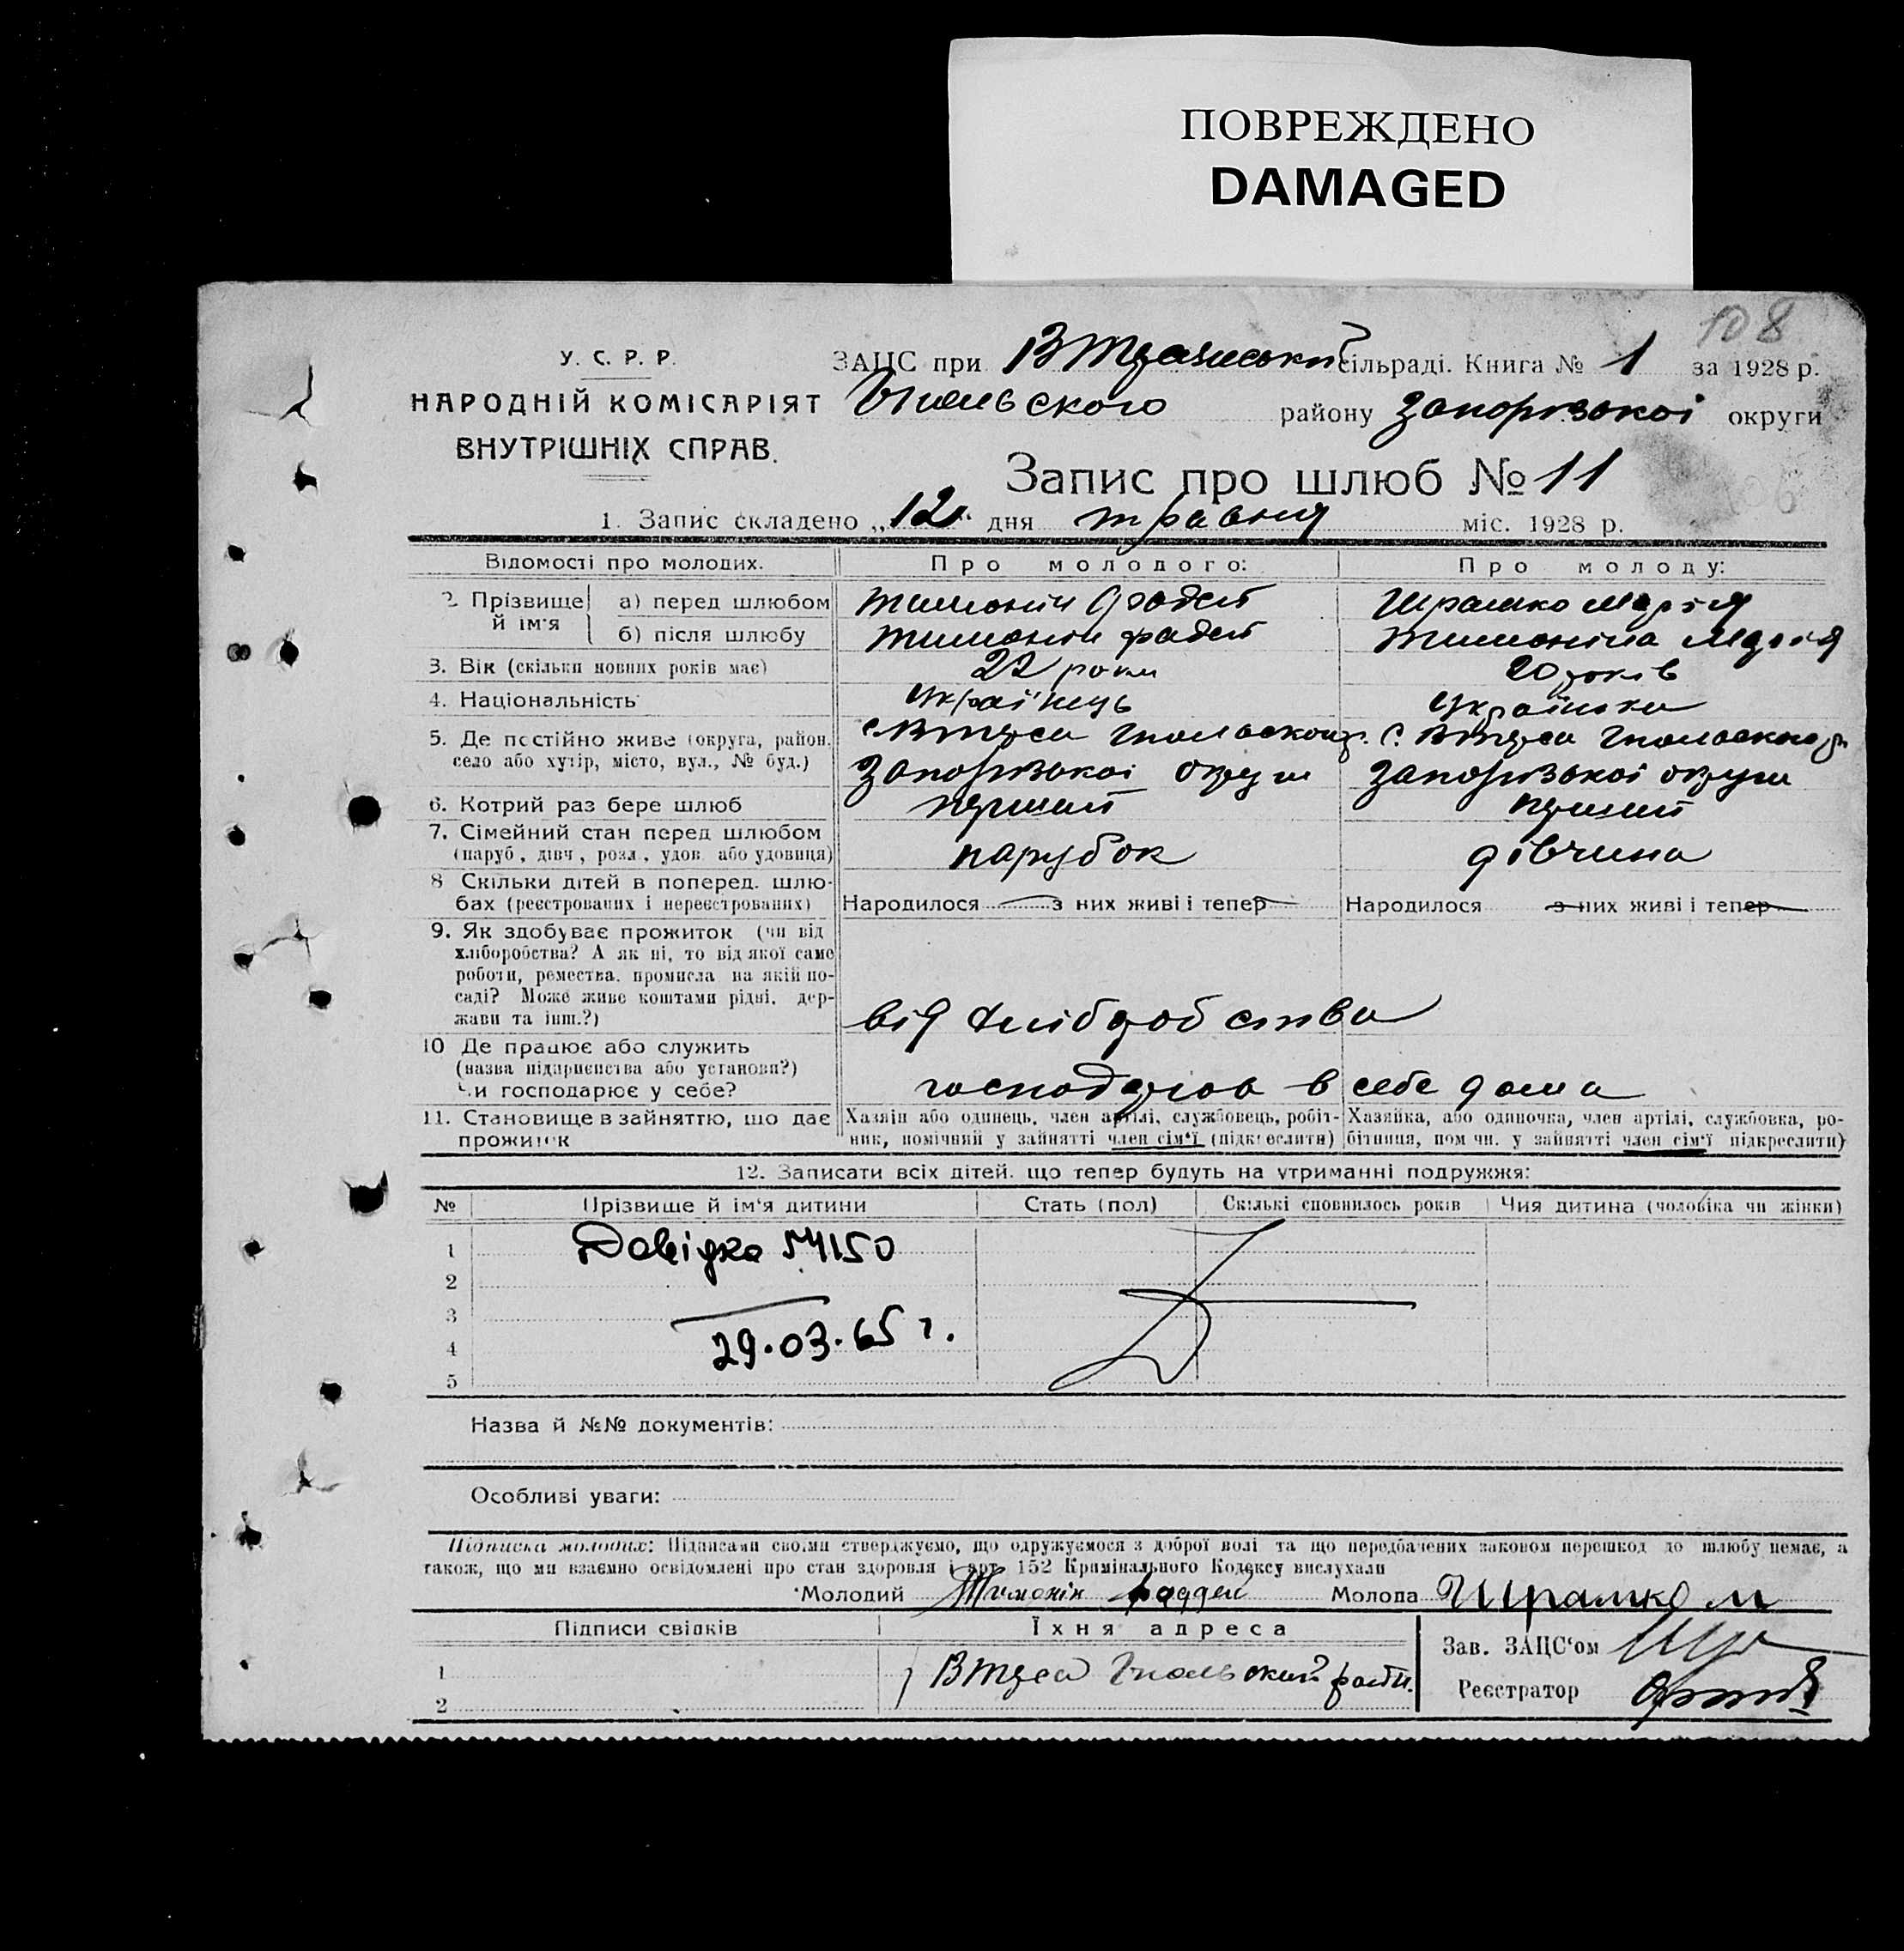 ПОВРЕЖДЕНО
DAMAGED
108
У. С. Р. Р.
НАРОДНІЙ КОМІСАРІЯТ
ВНУТРІШНІХ СПРАВ.
ЗАЦС при сільраді. Книга № 1 за 1928 р.
району Запорізької округи
Запис про шлюб № 11
1. Запис складено „12“ дня травня міс. 1928 р.
Відомості про молодих.
Про молодого:
Про молоду:
2. Прізвище й ім'я
а) перед шлюбом
Тимонін Фадей
Шрамко Марія
б) після шлюбу
Тимонін Фадей
Тимоніна Марія
3. Вік (скільки повних років має)
22 роки
20 років
4. Національність
Українець
Українка
5. Де постійно живе (округа, район,
село або хутір, місто, вул., № буд.)
Запорізької округи
Запорізької округи
6. Котрий раз бере шлюб
перший
перший
7. Сімейний стан перед шлюбом
(паруб., дівч., розл., удов. або удовиця)
парубок
дівчина
8 Скільки дітей в поперед. шлю-
бах (реєстрованих і нереєстрованих)
Народилося з них живі і тепер
Народилося з них живі і тепер
9. Як здобуває прожиток (чи від
хліборобства? А як ні, то від якої саме
роботи, ремества, промисла на якій по-
саді? Може живе коштами рідні, дер-
жави та інш.?)
від хліборобства
10 Де працює або служить
(назва підприємства або установи?)
Чи господарює у себе?
в себе дома
11. Становище в зайняттю, що дає
прожиток
Хазяїн або одинець, член артілі, службовець, робіт-
ник, помічний у зайнятті член сім'ї (підкреслити)
Хазяйка, або одиночка, член артілі, службовка, ро-
бітниця, пом чн. у зайнятті член сім'ї підкреслити)
12. Записати всіх дітей. що тепер будуть на утриманні подружжя:
№
Прізвище й ім'я дитини
Стать (пол)
Скількі сповнилось років
Чия дитина (чоловіка чи жінки)
1
Довідка 54150
2
3
4
29.03.65 г.
5
Назва й №№ документів:
Особливі уваги:
Підписка молодих: Підписами своїми стверджуємо, що одружуємося з доброї волі та що передбачених законом перешкод до шлюбу немає, а
також, що ми взаємно освідомлені про стан здоровля і арт. 152 Кримінального Кодексу вислухали
Молодий Тимонін Фаддей Молода Шрамко М
Підписи свідків
Їхня адреса
Зав. ЗАЦС'ом
1
Реєстратор
2